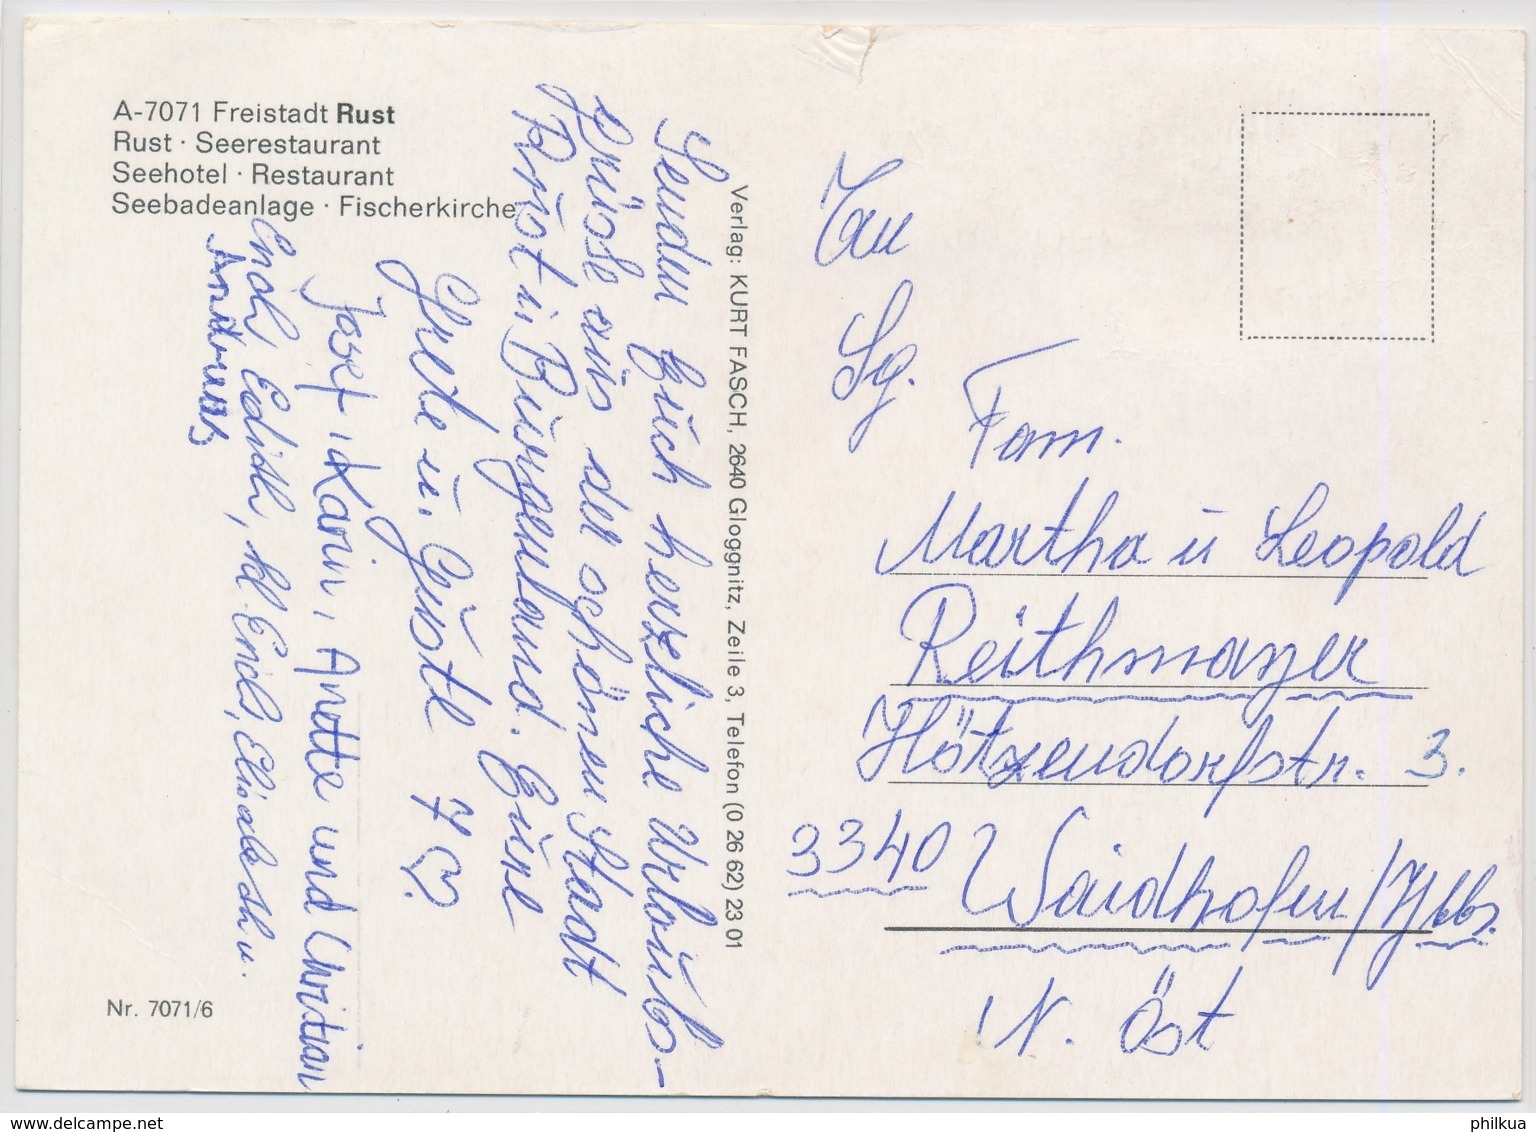 A-7071 Freistadt Rust
Rust · Seerestaurant
Seehotel · Restaurant
Seebadeanlage · Fischerkirche
Senden Euch herzliche Urlaubs-
grüsse aus der schönen Stadt
Rust in Burgenland. Eure
Grete u. Gustl 7 ♡.
Josef, Karin, Anette und Christian
Erich, Edith, kl. Erich, Elisabeth u.
Andreas
Verlag: KURT FASCH, 2640 Gloggnitz, Zeile 3, Telefon (0 26 62) 23 01
Sg.
Fam.
Martha u Leopold
Reithmayer
Hötzendorfstr. 3.
3340 Waidhofen/Ybbs.
N. Öst
Nr. 7071/6
www.delcampe.net
philkua